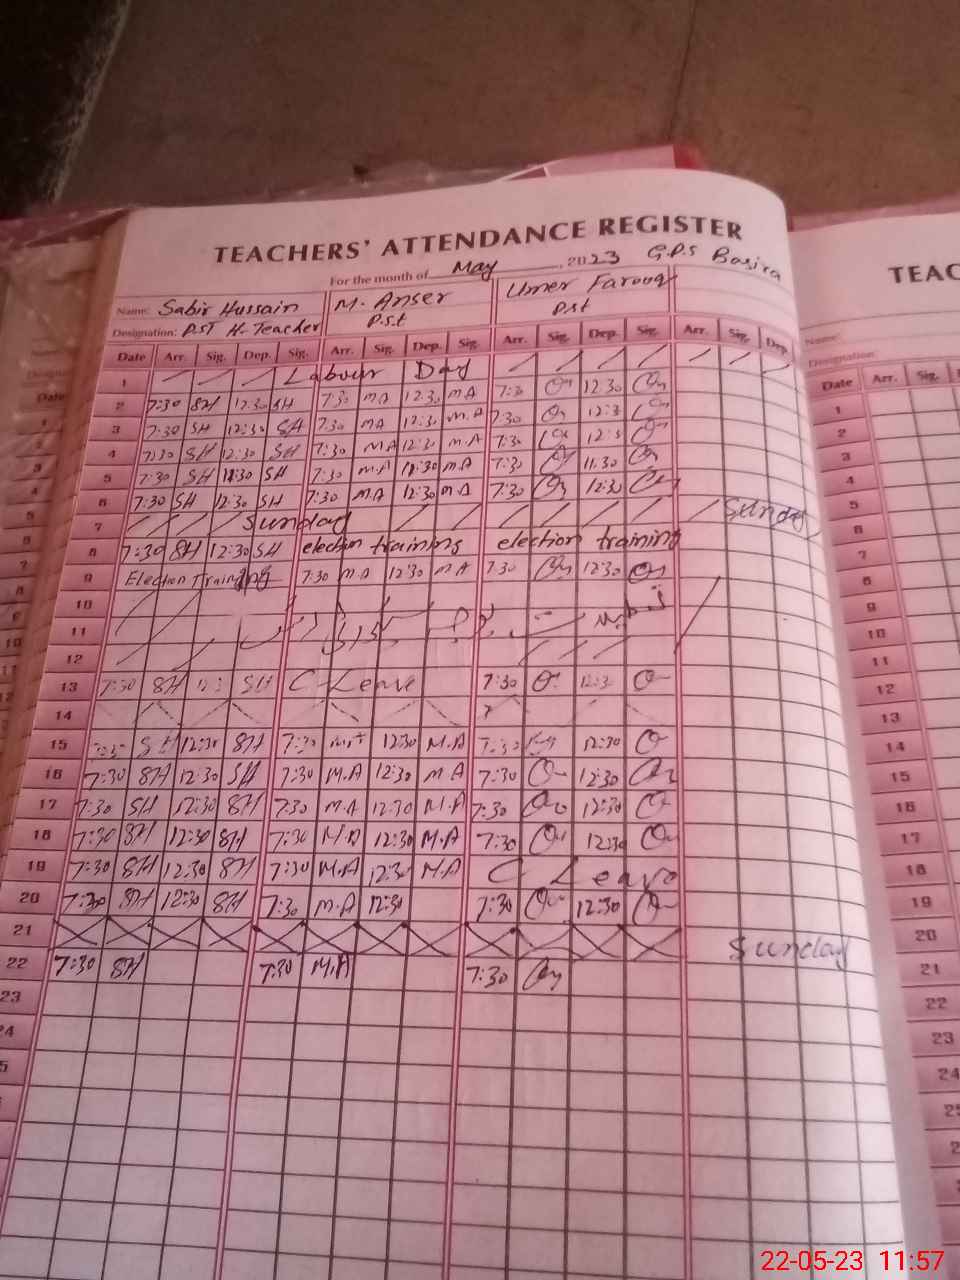 TEACHERS' ATTENDANCE REGISTER
For the month of May, 2023 G.P.S Basira
Name: Sabir Hussain M. Anser Umer Farooq
Designation: PST H-Teacher P.s.t P.s.t
Date Arr. Sig. Dep. Sig. Arr. Sig. Dep. Sig. Arr. Sig. Dep. Sig. Arr. Sig. Dep.
1 Labour Day
2 7:30 SH 12:30 SH 7:30 MA 12:30 MA 7:30 12:30
3 7:30 SH 12:30 SH 7:30 MA 12:30 M.A 7:30 12:3
4 7:30 SH 12:30 SH 7:30 MA 12:30 M.A 7:30 12:3
5 7:30 SH SH 7:30 M.A 11:30 M.A 7:30 11.30
6 7:30 SH 12:30 SH 7:30 M.A 12:30 M.A 7:30 12:30
7 Sunday Sunday
8 7:30 SH 12:30 SH election training election training
9 Election Training 7:30 M.A 12:30 M.A 7:30 12:30
10
11
12
13 7:30 SH 12:3 SH C-Leave 7:30 12:3
14
15 SH 12:30 SH 7:30 12:30 M.A 7:30 12:30
16 7:30 SH 12:30 SH 7:30 M.A 12:30 M.A 7:30 12:30
17 7:30 SH 12:30 SH 7:30 M.A 12:30 M.A 7:30 12:30
18 7:30 SH 12:30 SH 7:30 M.A 12:30 M.A 7:30 12:30
19 7:30 SH 12:30 SH 7:30 M.A 12:30 M.A C Leave
20 7:30 SH 12:30 SH 7:30 M.A 12:30 7:30 12:30
21 Sunday
22 7:30 SH 7:30 M.A 7:30
23
TEAC
Name:
Designation:
Date Arr. Sig.
1
2
3
4
5
6
7
8
9
10
11
12
13
14
15
16
17
18
19
20
21
22
23
24
22-05-23 11:57